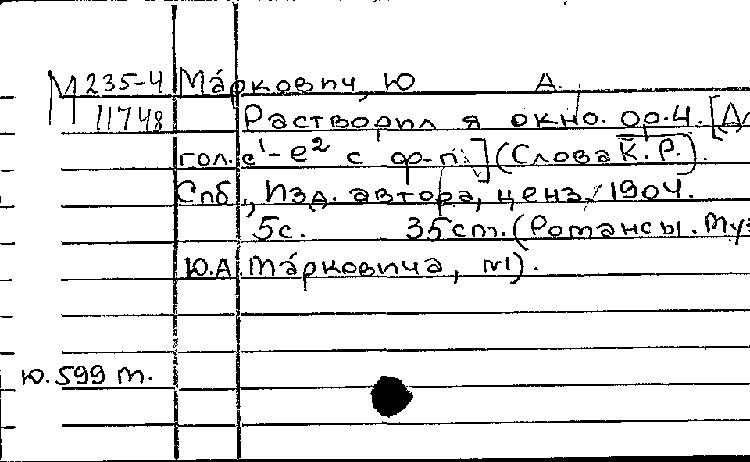 М 235-4 Ма́ркович, Ю А.
11748 Растворил я окно. ор.4. [Дл
гол. e¹-e² с ф-п.] (Слова К.Р.).
Спб., Изд. автора, ценз. 1904.
5с. 35см. (Романсы. Муз
Ю.А. Ма́рковича, №1).
Ю.599 т.